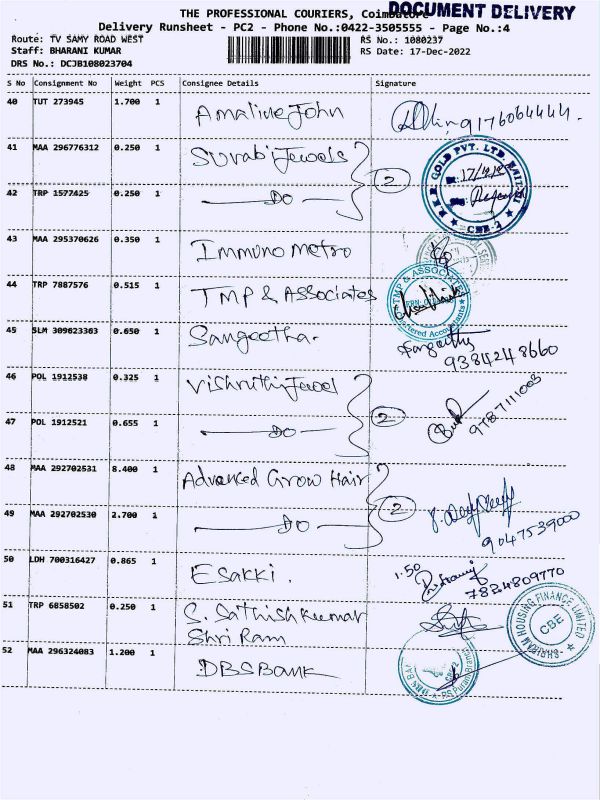 THE PROFESSIONAL COURIERS, Coimbatore
DOCUMENT DELIVERY
Delivery Runsheet - PC2 - Phone No.:0422-3505555 - Page No.:4
Route: TV SAMY ROAD WEST RS No.: 1080237
Staff: BHARANI KUMAR RS Date: 17-Dec-2022
DRS No.: DCJB108023704
S No Consignment No Weight PCS Consignee Details Signature
40 TUT 273945 1.700 1 Amaline John 9176064444.
41 MAA 296776312 0.250 1 Surabi Jewels
42 TRP 1577425 0.250 1 DO 2
43 MAA 295370626 0.350 1 Immuno Metro
44 TRP 7887576 0.515 1 TMP & Associates
45 SLM 309623363 0.650 1 Sangeetha. Sangeetha 9384248660
46 POL 1912538 0.325 1 Vishruthi Jewel
47 POL 1912521 0.655 1 DO 2 9787111003
48 MAA 292702531 8.400 1 Advanced Grow Hair
49 MAA 292702530 2.700 1 DO 2 9047539000
50 LDH 700316427 0.865 1 Esakki. 1.50 7884809770
51 TRP 6858502 0.250 1 S. Sathish Kumar
Shri Ram
52 MAA 296324083 1.200 1 DBS Bank
TMP & ASSOCIATES
SHRIRAM HOUSING FINANCE LIMITED
CBE